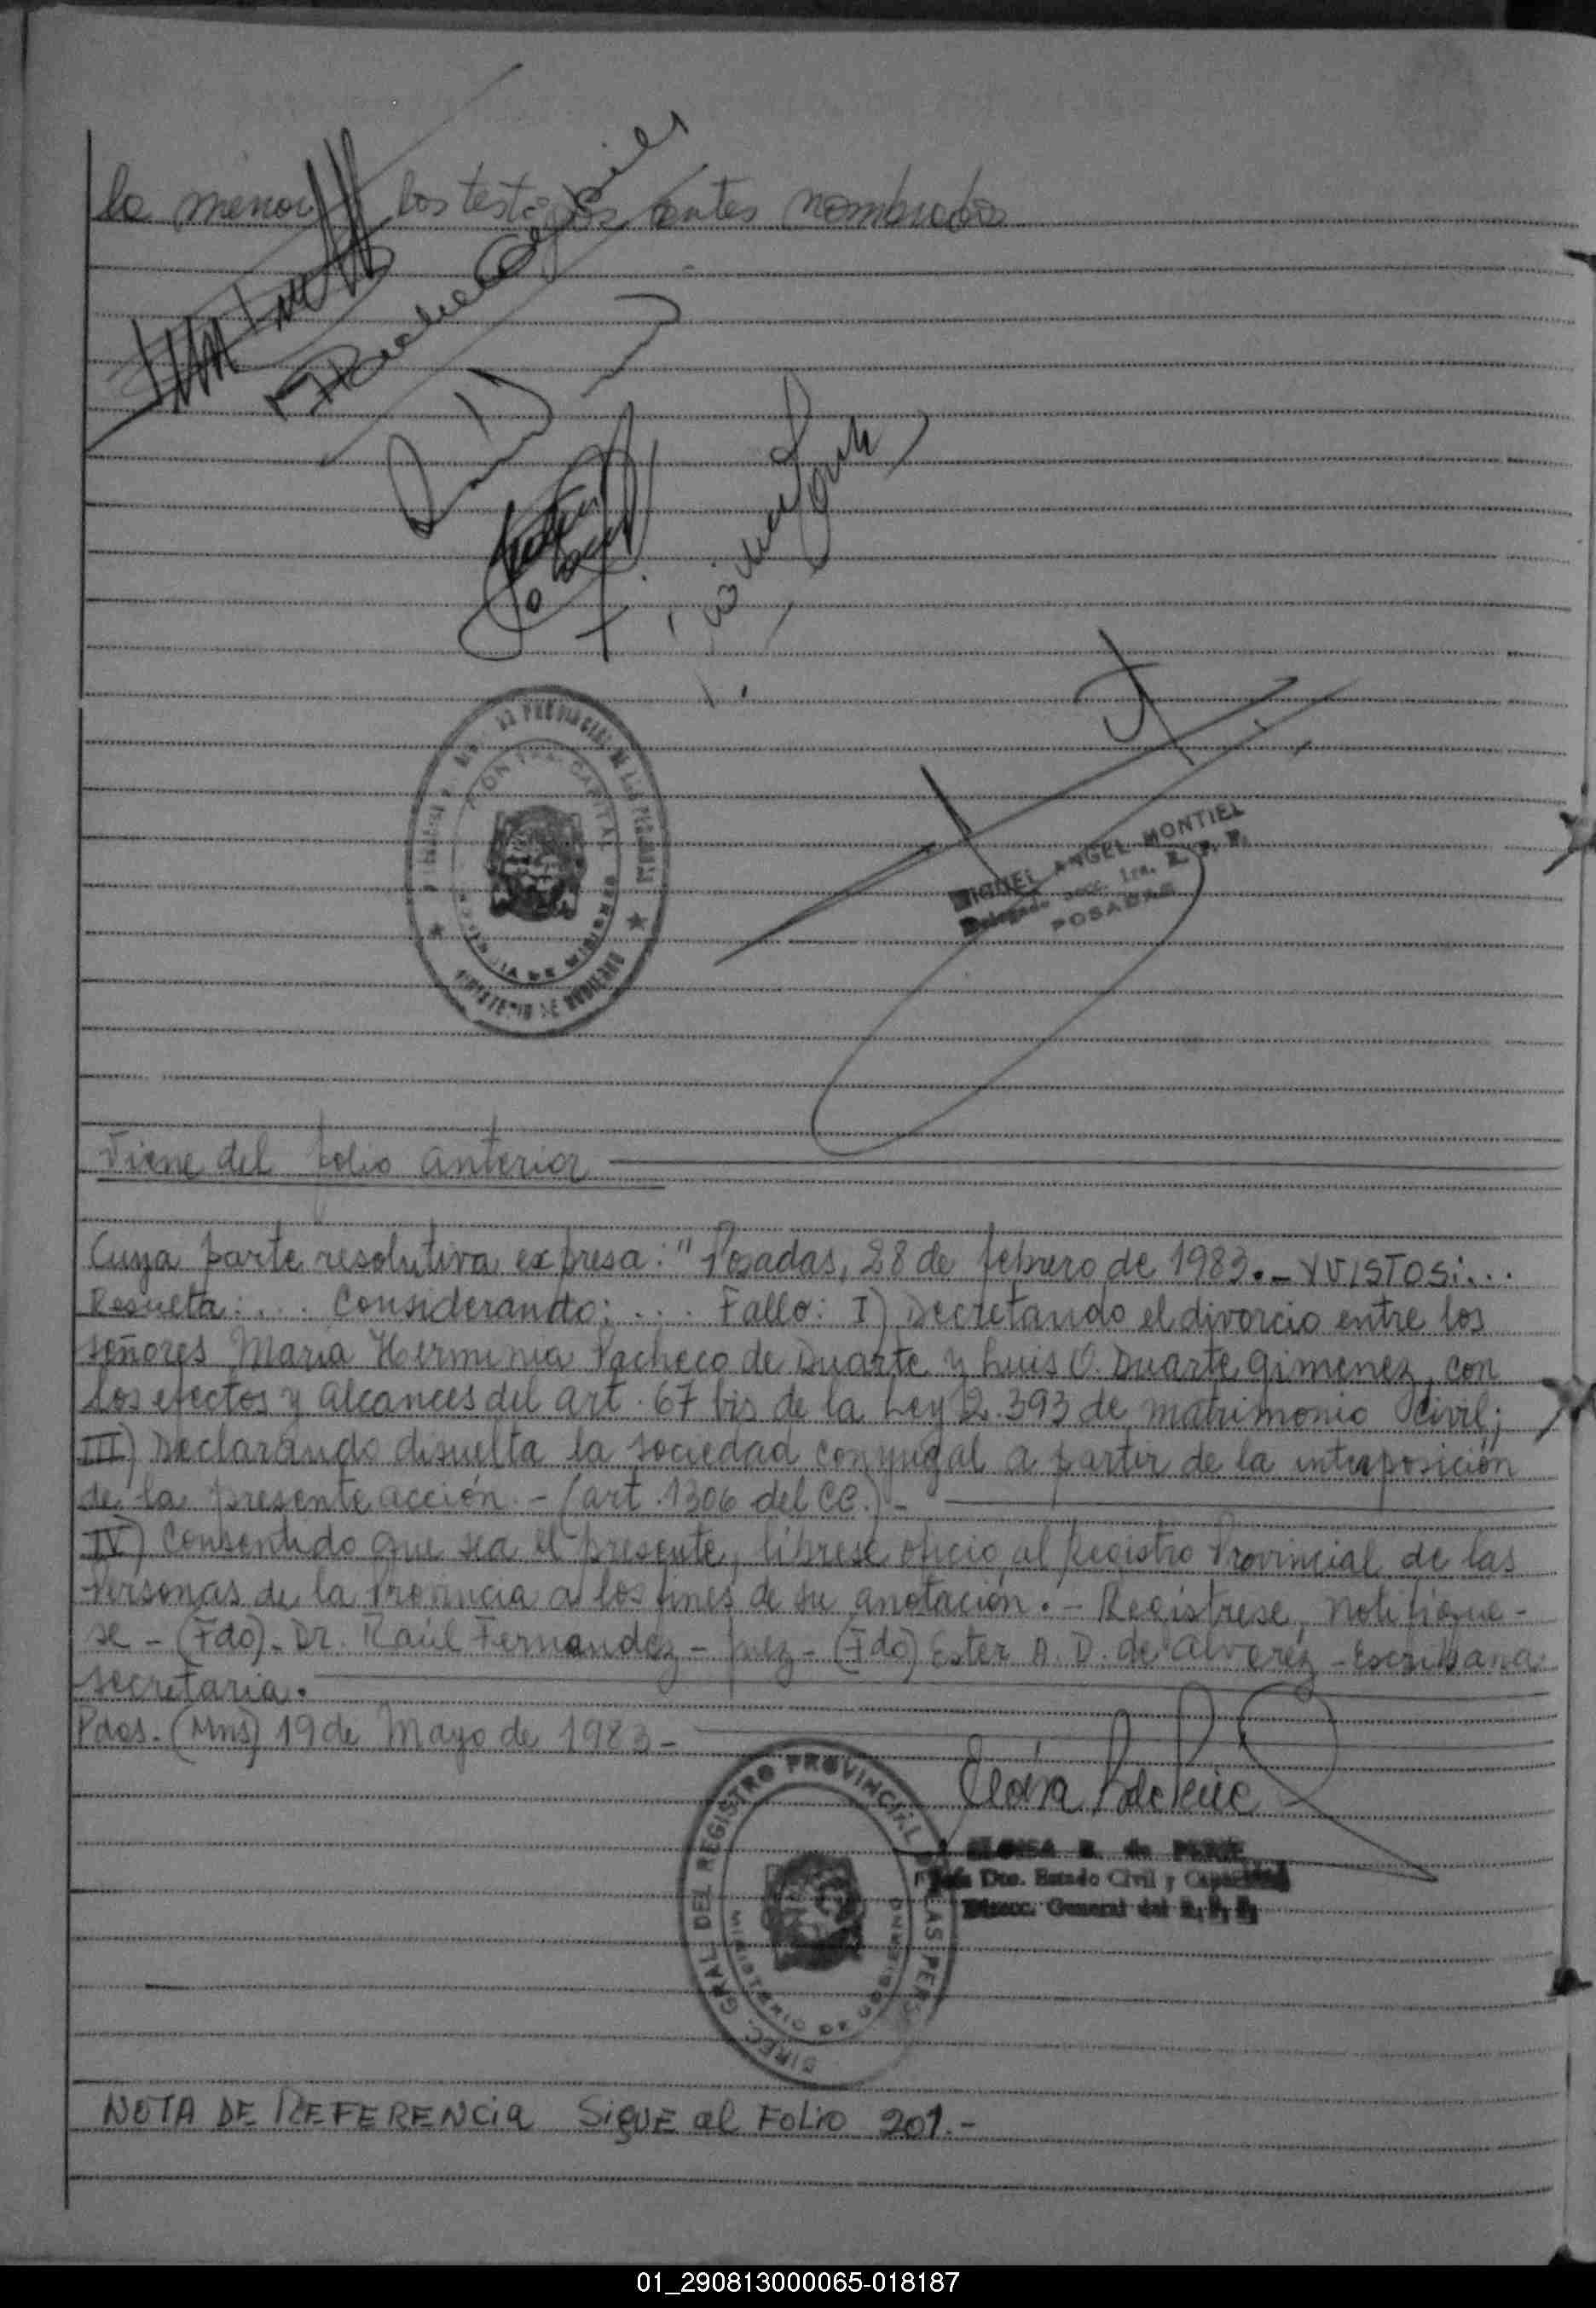 la menor los testigos antes nombrados
MIGUEL ANGEL MONTIEL
Delegado Secc. 1ra. R. P. P.
POSADAS
Viene del folio anterior
Cuya parte resolutiva expresa: "Posadas, 28 de febrero de 1983.- Y VISTOS:...
Resulta:.... Considerando:.... Fallo: I) Decretando el divorcio entre los
señores María Herminia Pacheco de Duarte y Luis O. Duarte Gimenez, con
los efectos y alcances del art. 67 bis de la Ley 2.393 de matrimonio Civil;
III) Declarando disuelta la sociedad conyugal a partir de la interposición
de la presente acción.- (art. 1306 del CC.)-
IV) Consentido que sea el presente, líbrese oficio al Registro Provincial de las
Personas de la Provincia a los fines de su anotación.- Regístrese, notifique-
se - (Fdo)- Dr. Raúl Fernandez - Juez - (Fdo) Ester A. D. de Alvarez - Escribana
secretaria.
Pdas. (Mns) 19 de Mayo de 1983-
DIREC. GRAL. DEL REGISTRO PROVINCIAL LAS PERS
MINISTERIO DE GOBIERNO
ELOISA B. de
Jefa Dto. Estado Civil y Capacidad
Direcc. General del R. P. P.
NOTA DE REFERENCIA SIGUE al FOLIO 201.-
01_290813000065-018187